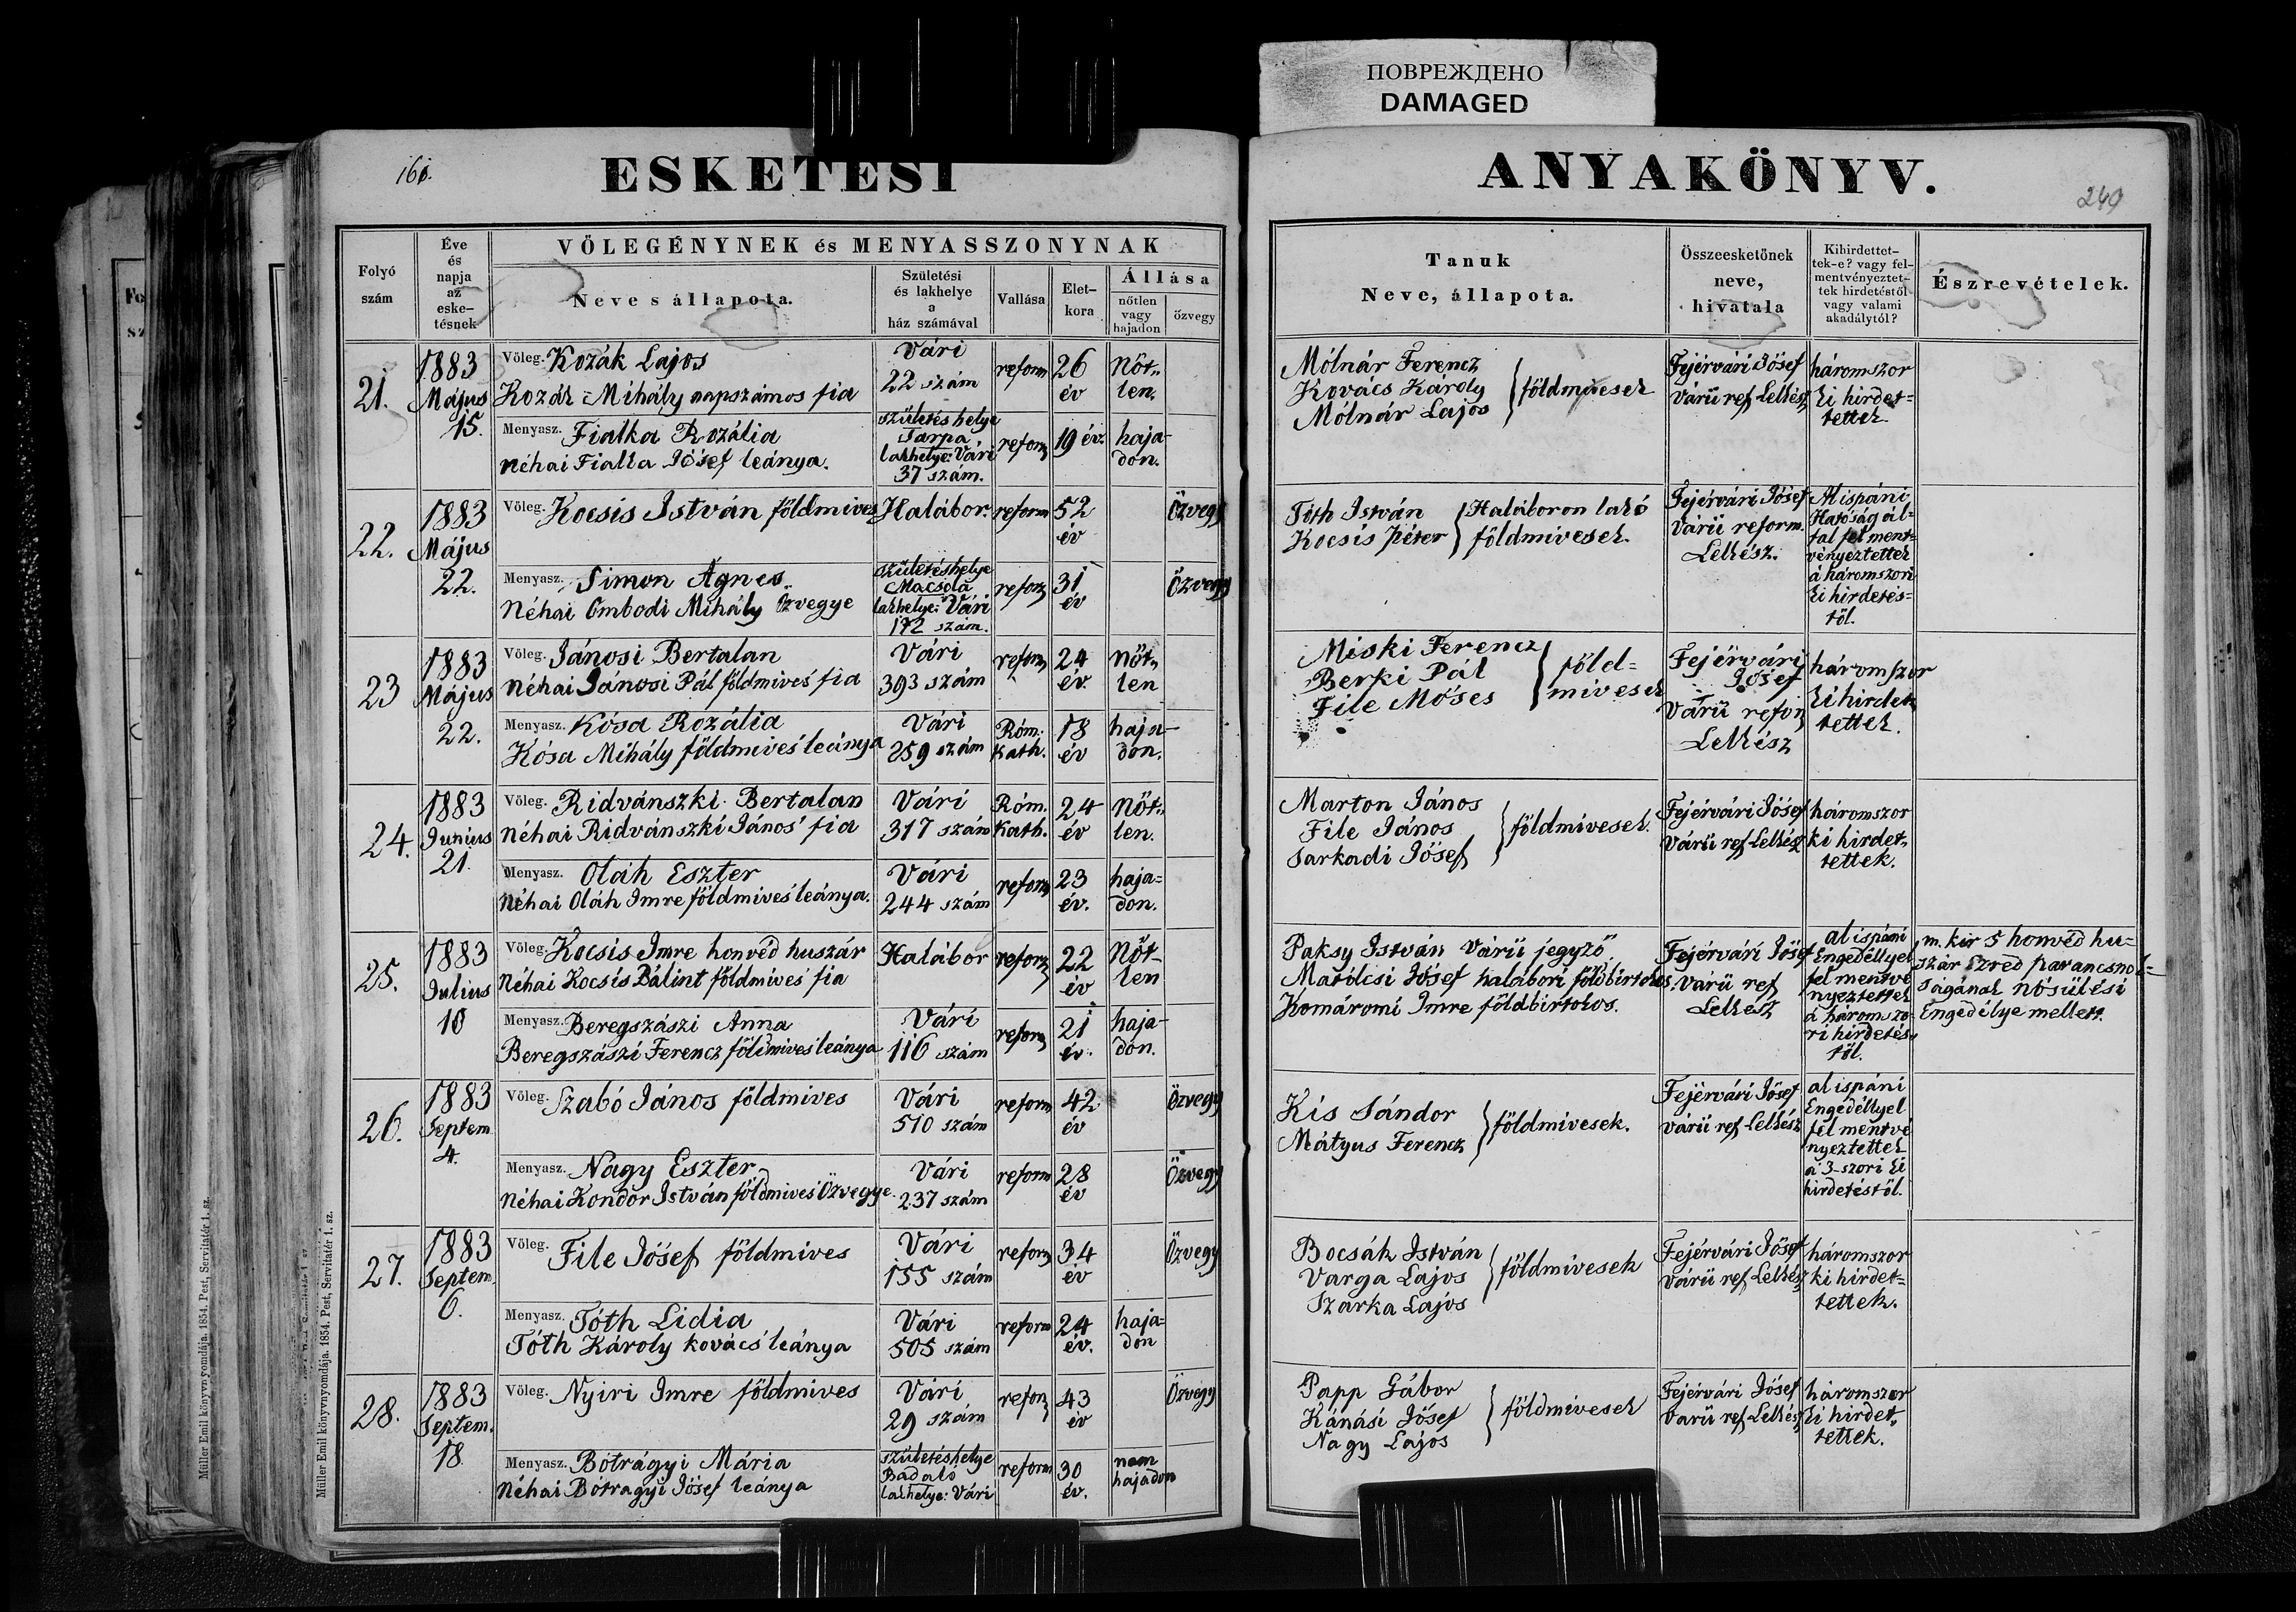 ПОВРЕЖДЕНО
DAMAGED
161.
ESKETÉSI
ANYAKÖNYV.
249
Folyó szám
Éve és napja az eske- tésnek
VŐLEGÉNYNEK és MENYASSZONYNAK
Neve s állapota.
Születési és lakhelye a ház számával
Vallása
Élet- kora
Állása
nőtlen vagy hajadon
özvegy
Tanuk
Neve, állapota.
Összeesketőnek neve, hivatala
Kihirdettet- tek-e? vagy fel- mentvényeztet- tek hirdetéstől vagy valami akadálytól?
Észrevételek.
21. 1883 Május 15.
Vőleg. Kozák Lajos
Kozák Mihály napszámos fia
Vári 22 szám
reform
26 év
Nőt- len.
Menyasz. Fialka Rozália
néhai Fialka Jósef leánya.
születés helye Tarpa, lakhelye: Vári 37 szám.
reform
19 év
haja- don.
Mólnár Ferencz
Kovács Károly
Mólnár Lajos
földmivesek
Fejérvári Jósef
Várii ref Lelkész
háromszor ki hirdet= tettek.
22. 1883 Május 22.
Vőleg. Kocsis István földmives
Halábor.
reform
52 év
Özvegy
Menyasz. Simon Ágnes
Néhai Ombodi Mihály Özvegye
születéshelye Macsola lakhelye: Vári 172 szám.
reform
31 év
Özvegy
Tóth István
Kocsis Péter
Haláboron lakó földmivesek.
Fejérvári Jósef
Várii reform. Lelkész.
Alispáni Hatóság ál- tal fel ment- vényeztettek á háromszori ki hirdetés= től.
23 1883 Május 22.
Vőleg. Jánosi Bertalan
néhai Jánosi Pál földmives fia
Vári 393 szám
reform
24 év.
nőt- len
Menyasz. Kósa Rozália
Kósa Mihály földmives leánya
Vári 259 szám
Róm. Kath.
18 év
haja- don.
Miski Ferencz
Berki Pál
File Móses
föld= mivesek
Fejérvári Jósef
Várii reform Lelkész
háromszor ki hirdet- tettek.
24. 1883 Junius 21.
Vőleg. Ridvánszki Bertalan
néhai Ridvánszki János fia
Vári 317 szám
Róm. Kath.
24 év
Nőt- len.
Menyasz. Oláh Eszter
Néhai Oláh Imre földmives leánya.
Vári 244 szám
reform
23 év.
haja= don.
Marton János
File János
Sarkadi Jósef
földmivesek.
Fejérvári Jósef
Várii ref Lelkész
háromszor ki hirdet- tettek.
25. 1883 Julius 10
Vőleg. Kocsis Imre honvéd huszár
Néhai Kocsis Bálint földmives fia
Halábor
reform
22 év
Nőt- len
Menyasz. Beregszászi Anna
Beregszászi Ferencz földmives leánya
Vári 116 szám
reform
21 év.
haja- don.
Paksy István Várii jegyző
Matólcsi Jósef halábori földbirtokos.
Komáromi Imre földbirtokos.
Fejérvári Jósef
Várii ref Lelkész
alispáni Engedéllyel fel mentvé nyeztettek á háromszo- ri hirdetés- től.
m. kir 5 honvéd hu=
szár Ezred parancsnok=
ságának nősülési
Engedélye mellett.
26. 1883 Septem 4.
Vőleg. Szabó János földmives
Vári 510 szám
reform
42 év
Özvegy
Menyasz. Nagy Eszter
Néhai Kondor István földmives Özvegye.
Vári 237 szám
reform
28 év
Özvegy
Kis Sándor
Mátyus Ferencz
földmivesek.
Fejérvári Jósef
Várii ref Lelkész
alispáni Engedéllyel fel mentvé nyeztettek á 3-szori ki hirdetéstől.
27. 1883 Septem. 6.
Vőleg. File Jósef földmives
Vári 155 szám
reform
34 év
Özvegy
Menyasz. Tóth Lidia
Tóth Károly kovács leánya
Vári 505 szám
reform
24 év.
haja= don
Bocsák István
Varga Lajos
Szarka Lajos
földmivesek
Fejérvári Jósef
Várii ref Lelkész
háromszor ki hirdet= tettek.
28. 1883 Septem. 18.
Vőleg. Nyiri Imre földmives
Vári 29 szám
reform
43 év
Özvegy
Menyasz. Botrágyi Mária
Néhai Botragyi Jósef leánya
születéshelye Badaló lakhelye: Vári
reform
30 év.
nem hajadon
Papp Gábor
Kánási Jósef
Nagy Lajos
földmivesek
Fejérvári Jósef
Várii ref Lelkész
háromszor ki hirdet- tettek.
Müller Emil könyvnyomdája. 1854. Pest, Servitatér 1. sz.
Müller Emil könyvnyomdája. 1854. Pest, Servitatér 1. sz.